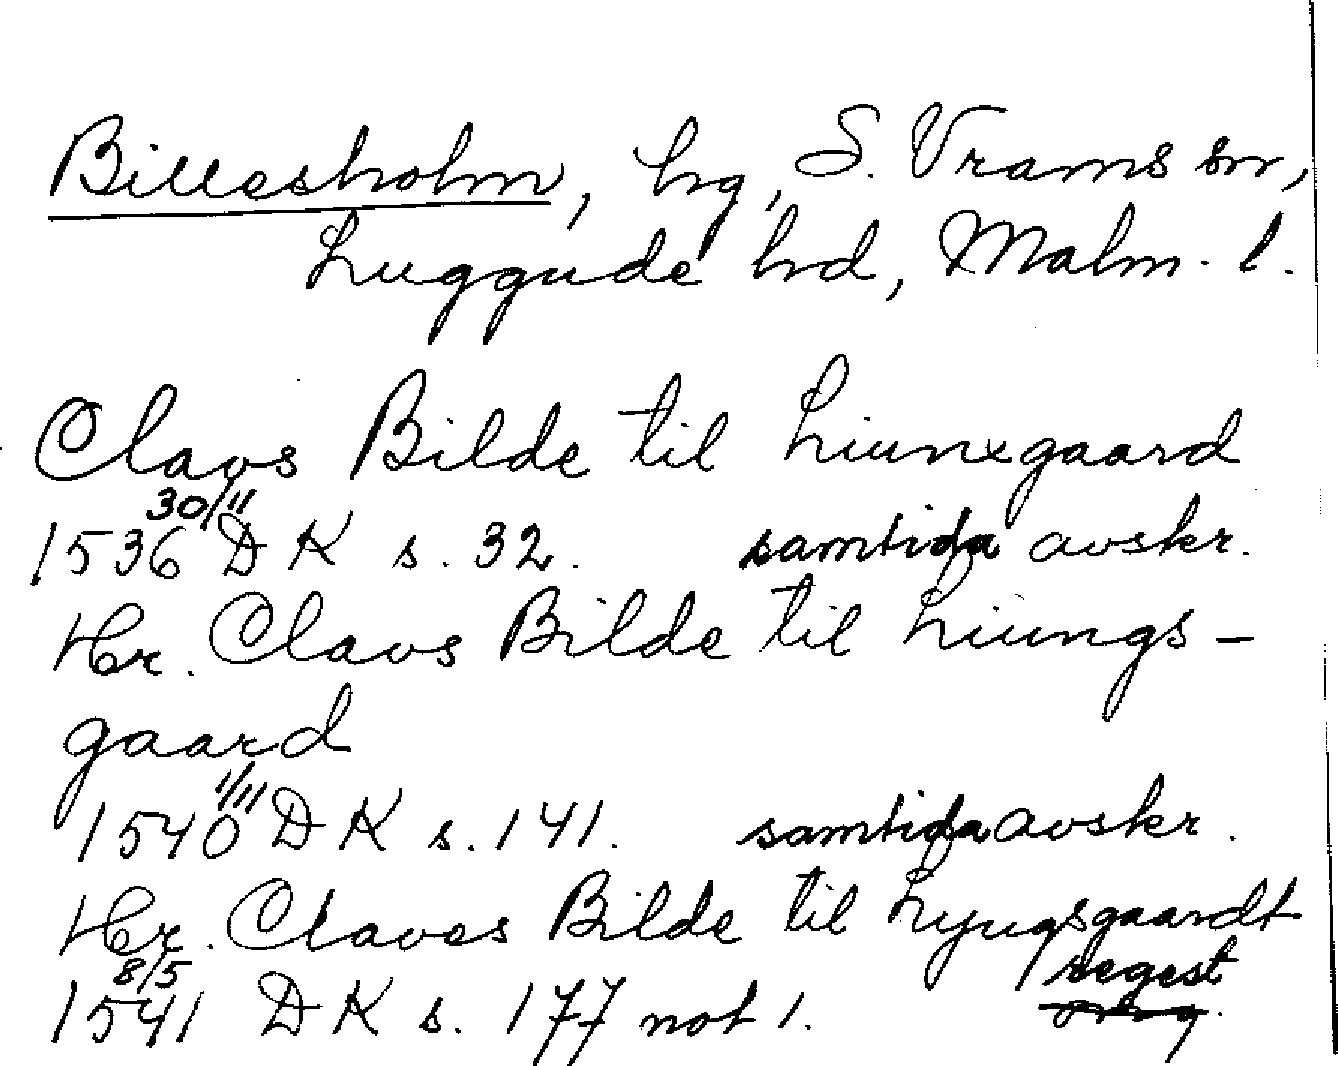 Billesholm, hg, S. Vrams sn,
Luggude hd, Malm. l.
Claos Bilde til Liunxgaard
30/11
1536 DK s. 32. samtida avskr.
Hr. Claos Bilde til Liungs-
gaard
1/11
1540 DK s. 141. samtida avskr.
Hr. Claves Bilde til Lyngsgaardt
8/5 regest
1541 DK s. 177 not 1.